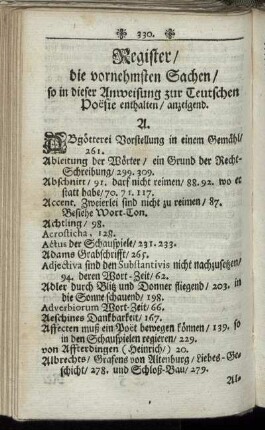 330.
Register/
die vornehmsten Sachen/
so in dieser Anweisung zur Teutschen
Poësie enthalten/ anzeigend.
A.
ABgötterei Vorstellung in einem Gemähl/
261.
Ableitung der Wörter/ ein Grund der Recht-
Schreibung/ 299. 309.
Abschnitt/ 91. darf nicht reimen/ 88. 92. wo er
statt habe/ 70. 71. 117.
Accent. Zweierlei sind nicht zu reimen/ 87.
Besihe Wort-Ton.
Achtling/ 98.
Acrosticha, 128.
Actus der Schauspiele/ 231. 233.
Adams Grabschrifft/ 265.
Adjectiva sind den Substantivis nicht nachzusetzen/
94. deren Wort-Zeit/ 62.
Adler durch Blitz und Donner fliegend/ 203. in
die Sonne schauend/ 198.
Adverbiorum Wort-Zeit/ 66.
Aeschines Dankbarkeit/ 167.
Affecten muß ein Poët bewegen können/ 139. so
in den Schauspielen regieren/ 229.
von Affterdingen (Heinrich/) 20.
Albrechts/ Grafens von Altenburg/ Liebes-Ge-
schicht/ 278. und Schloß-Bau/ 279.
Ale-